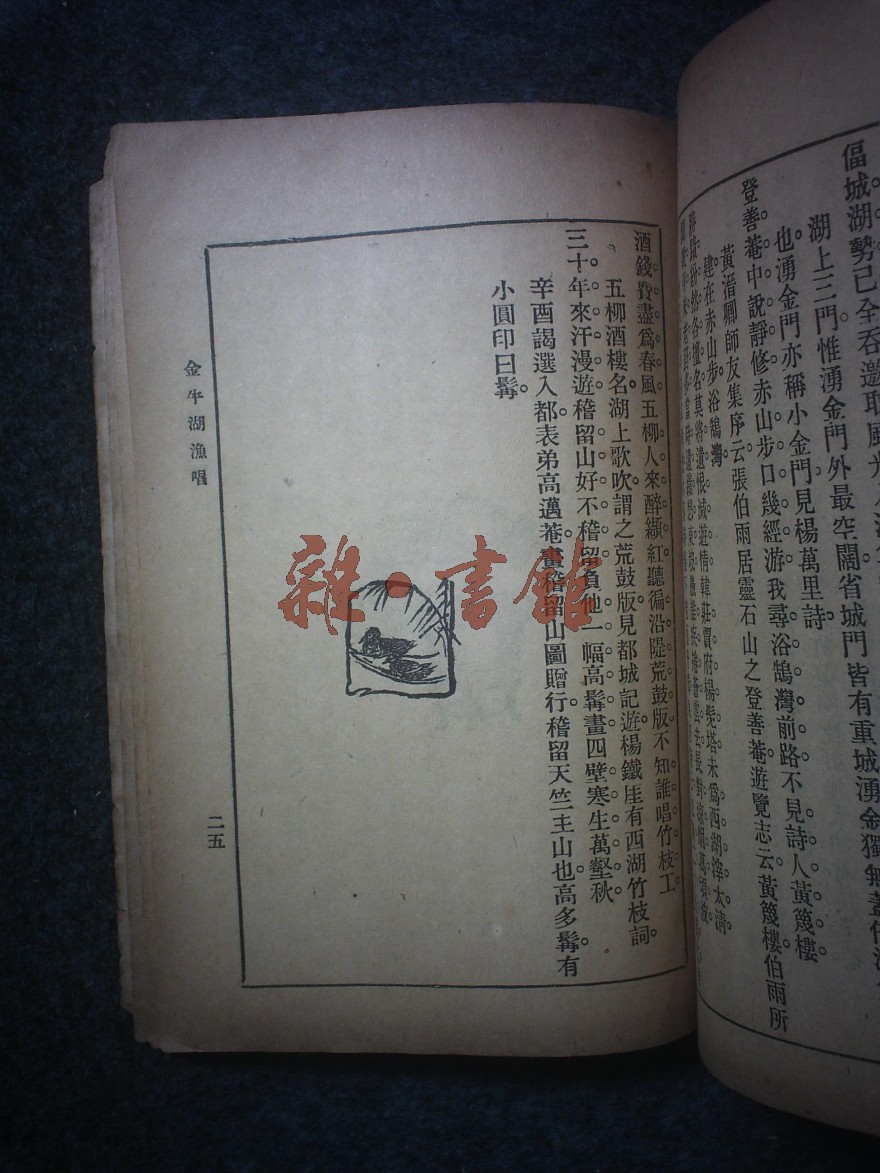 偪城湖勢已全吞邀取風光
湖上三門惟湧金門外最空闊省城門皆有重城湧金獨無蓋
也湧金門亦稱小金門見楊萬里詩。
登善菴中說靜修赤山步口幾經游我尋浴鵠灣前路不見詩人黃篾樓
黃溍卿師友集序云張伯雨居靈石山之登善菴遊覽志云黃篾樓伯雨所
建在赤山步浴鵠灣。
紛然各擅名莫將遺恨減遊情韓莊賈府楊髡塔未爲西湖滓太淸。
酒錢費盡爲春風五柳人來醉纈紅聽徧沿隄荒鼓版不知誰唱竹枝工
五柳酒樓名湖上歌吹謂之荒鼓版見都城記遊楊鐵厓有西湖竹枝詞。
三十年來汗漫遊稽留山好不稽留負他一幅高髯畫四壁寒生萬壑秋
辛酉謁選入都表弟高邁菴畫稽留山圖贈行稽留天竺主山也高多髯有
小圓印曰髯。
金牛湖漁唱
二五
雜·書館